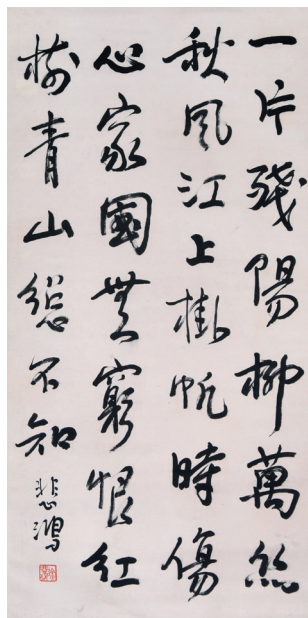 一片殘陽柳萬絲
秋風江上掛帆時傷
心家國無窮恨紅
樹青山總不知
悲鴻